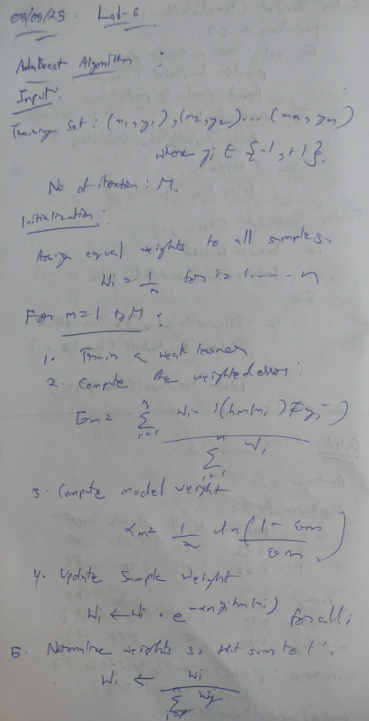 09/09/25. Lab-6
AdaBoost Algorithm :
Input:
Training Set : (x1, y1), (x2, y2)... (xn, yn)
where yi ∈ {-1, +1}.
No of iteration : M.
Initialization:
Assign equal weights to all samples.
Wi = 1/n for i = 1 ------ n
For m=1 to M :
1. Train a weak learner
2. Compute the weighted error:
Em = Σ(i=1 to n) Wi · 1(hm(xi) ≠ yi) / Σ(i=1 to n) Wi
3. Compute model weight
αm = 1/2 ln(1 - εm / εm)
4. Update Sample Weight
Wi ← Wi · e^(-αm yi hm(xi)) for all i
5. Normalize weights so that sum to 1'.
Wi ← Wi / Σ(j=1 to n) Wj